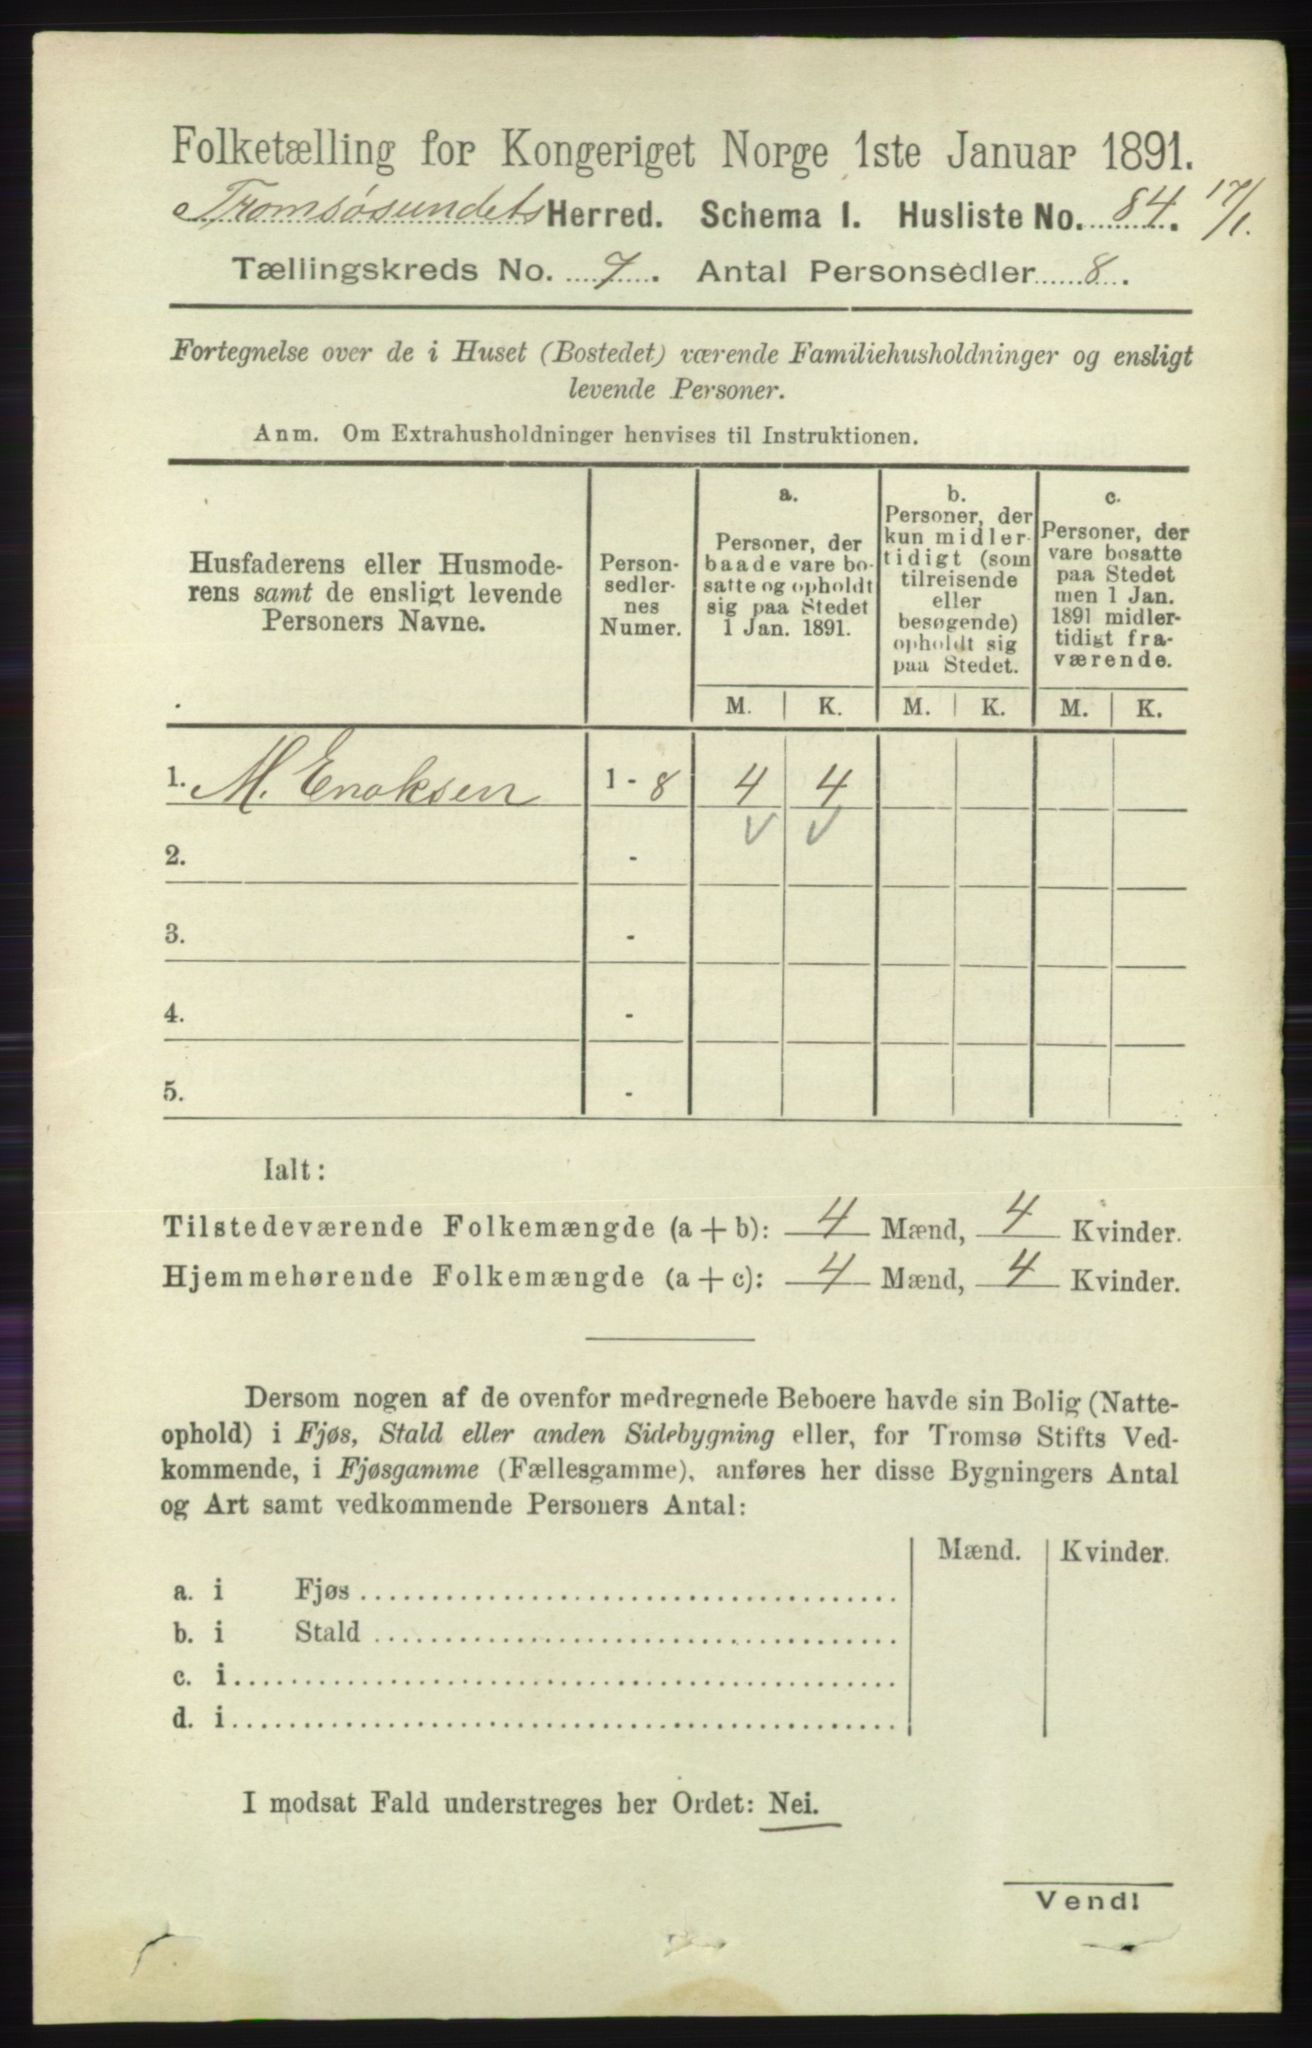 Folketælling for Kongeriget Norge 1ste Januar 1891.
Tromsøsundets Herred. Schema I. Husliste No. 84. 17/1.
Tællingskreds No. 7. Antal Personsedler 8.
Fortegnelse over de i Huset (Bostedet) værende Familiehusholdninger og ensligt
levende Personer.
Anm. Om Extrahusholdninger henvises til Instruktionen.
Husfaderens eller Husmode-
rens samt de ensligt levende
Personers Navne.
Person-
sedler-
nes
Numer.
a.
Personer, der
baade vare bo-
satte og opholdt
sig paa Stedet
1 Jan. 1891.
b.
Personer, der
kun midler-
tidigt (som
tilreisende
eller
besøgende)
opholdt sig
paa Stedet.
c.
Personer, der
vare bosatte
paa Stedet
men 1 Jan.
1891 midler-
tidigt fra-
værende.
M. K. M. K. M. K.
1. M. Enoksen 1 - 8 4 4
2. -
3. -
4. -
5. -
Ialt:
Tilstedeværende Folkemængde (a + b): 4 Mænd, 4 Kvinder.
Hjemmehørende Folkemængde (a + c): 4 Mænd, 4 Kvinder.
Dersom nogen af de ovenfor medregnede Beboere havde sin Bolig (Natte-
ophold) i Fjøs, Stald eller anden Sidebygning eller, for Tromsø Stifts Ved-
kommende, i Fjøsgamme (Fællesgamme), anføres her disse Bygningers Antal
og Art samt vedkommende Personers Antal:
Mænd. Kvinder.
a. i Fjøs
b. i Stald
c. i
d. i
I modsat Fald understreges her Ordet: Nei.
Vend!